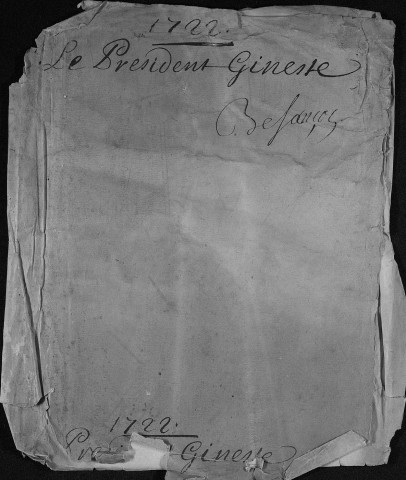 1722.
Le President Gineste
Besançon
1722.
Ginesse